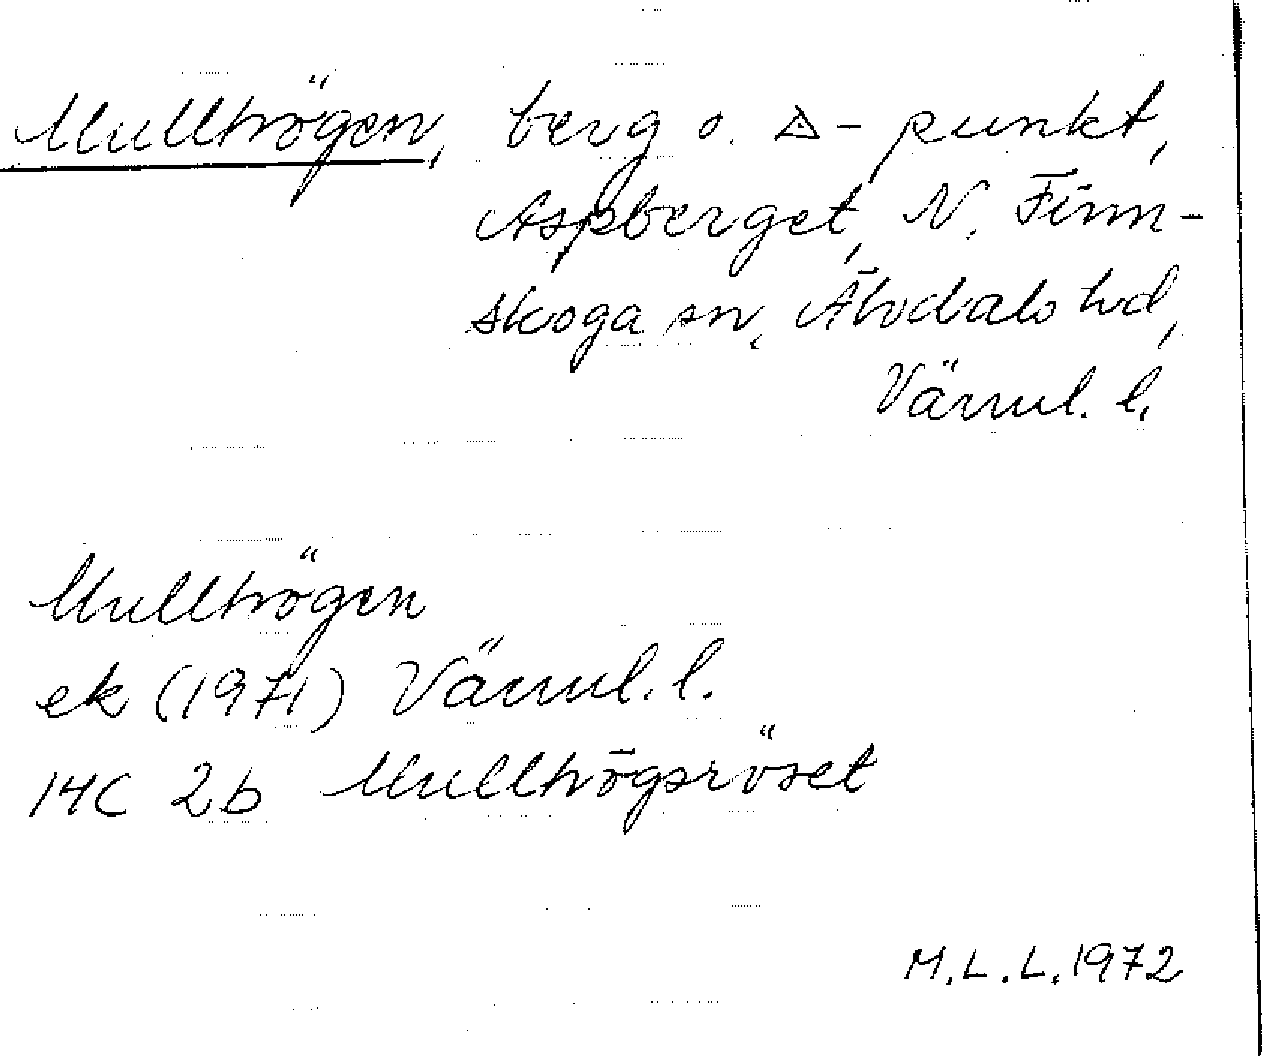 Mullhögen, berg o. △-punkt,
Aspberget, N. Finn-
skoga sn, Älvdals hd,
Värml. l.
Mullhögen
ek (1971) Värml. l.
14C 2b Mullhögsröset
M.L.L. 1972